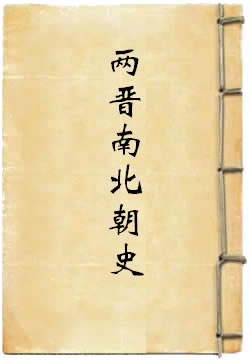 两晋南北朝史